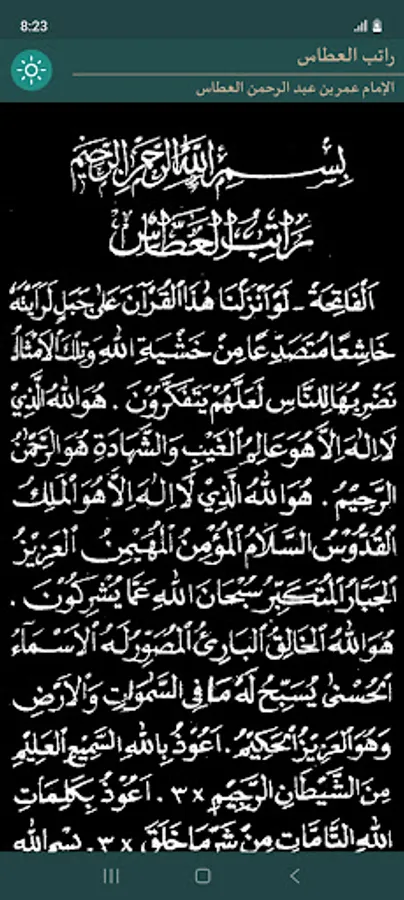 8:23
راتب العطاس
الإمام عمر بن عبد الرحمن العطاس
بِسْمِ اللهِ الرَّحْمٰنِ الرَّحِيْمِ
رَاتِبُ الْعَطَّاسْ
اَلْفَاتِحَةْ - لَوْ اَنْزَلْنَا هٰذَا الْقُرْآنَ عَلٰى جَبَلٍ لَرَاَيْتَهُ
خَاشِعًا مُتَصَدِّعًا مِنْ خَشْيَةِ اللهِ وَتِلْكَ الْاَمْثَالُ
نَضْرِبُهَا لِلنَّاسِ لَعَلَّهُمْ يَتَفَكَّرُوْنَ . هُوَ اللهُ الَّذِيْ
لَا اِلٰهَ اِلَّا هُوَ عَالِمُ الْغَيْبِ وَالشَّهَادَةِ هُوَ الرَّحْمٰنُ
الرَّحِيْمُ . هُوَ اللهُ الَّذِيْ لَا اِلٰهَ اِلَّا هُوَ الْمَلِكُ
الْقُدُّوْسُ السَّلَامُ الْمُؤْمِنُ الْمُهَيْمِنُ الْعَزِيْزُ
الْجَبَّارُ الْمُتَكَبِّرُ سُبْحَانَ اللهِ عَمَّا يُشْرِكُوْنَ .
هُوَ اللهُ الْخَالِقُ الْبَارِئُ الْمُصَوِّرُ لَهُ الْاَسْمَآءُ
الْحُسْنٰى يُسَبِّحُ لَهُ مَا فِى السَّمٰوَاتِ وَالْاَرْضِ
وَهُوَ الْعَزِيْزُ الْحَكِيْمُ . اَعُوْذُ بِاللهِ السَّمِيْعِ الْعَلِيْمِ
مِنَ الشَّيْطَانِ الرَّجِيْمِ ×٣ . اَعُوْذُ بِكَلِمَاتِ
اللهِ التَّامَّاتِ مِنْ شَرِّ مَا خَلَقَ ×٣ . بِسْمِ اللهِ